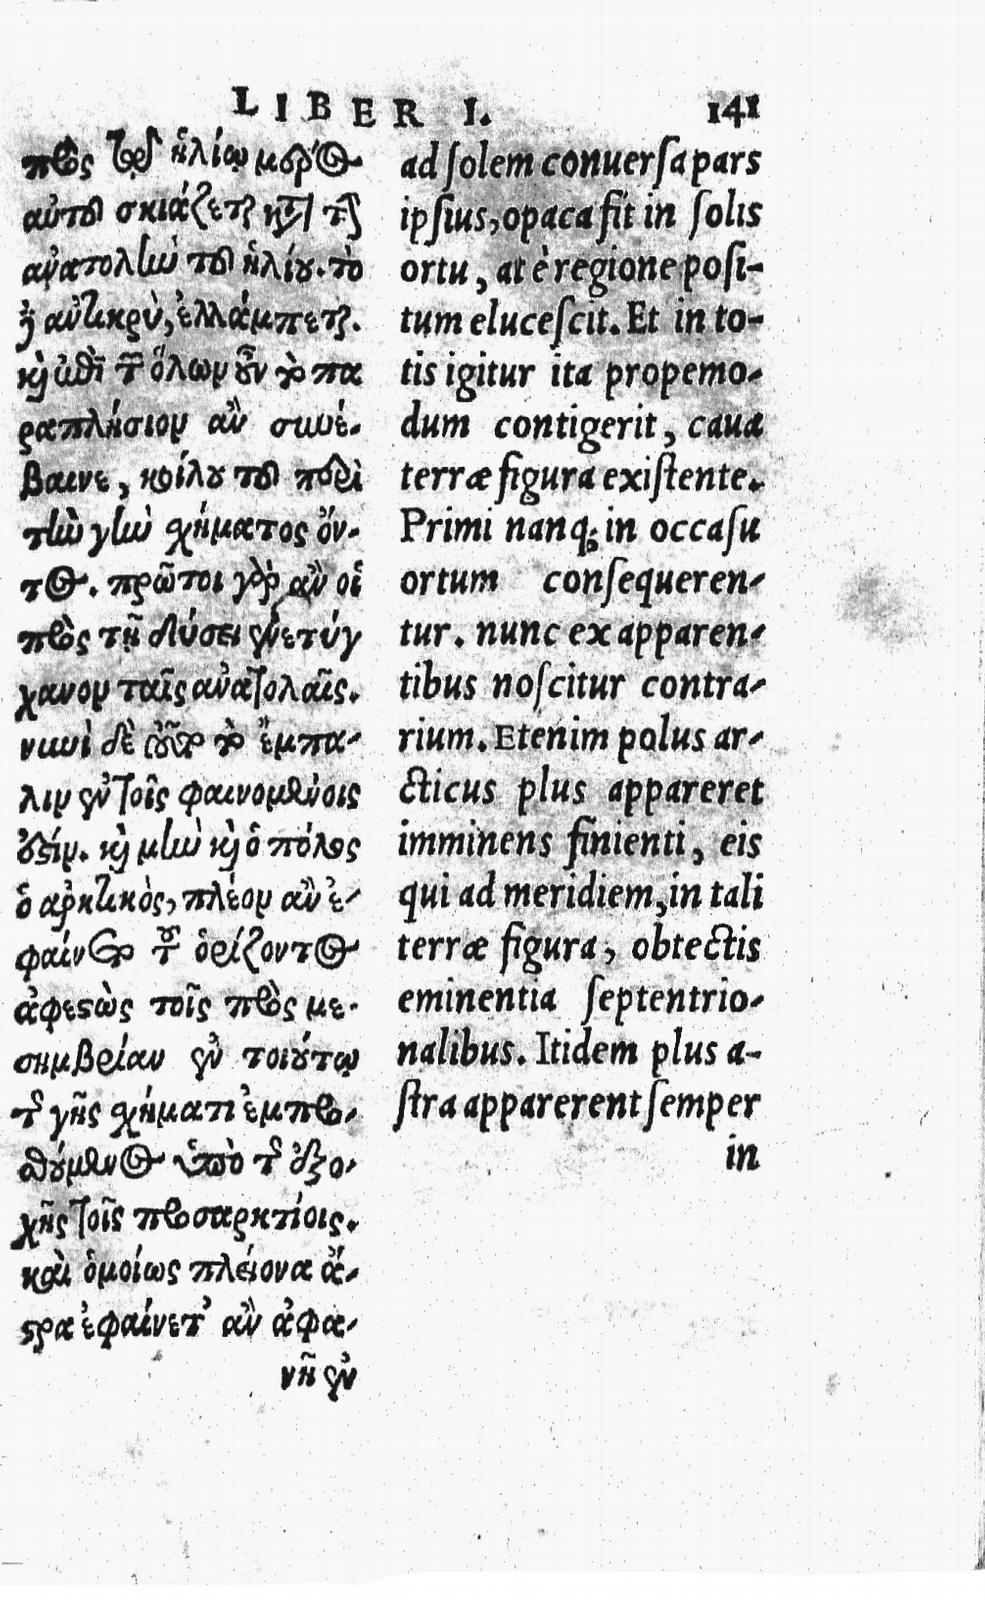 LIBER I. 141
πρὸς τῷ ἡλίῳ μέρος
αὐτοῦ σκιάζεται κατὰ τὴν
ἀνατολὴν τοῦ ἡλίου. τὸ
δ' ἀντικρὺ, ἐλλάμπεται.
καὶ ἐπὶ τῶν ὅλων οὖν τὸ πα
ραπλήσιον ἂν συνέ-
βαινε, κοίλου τοῦ περὶ
τὴν γῆν σχήματος ὄν-
τος. πρῶτοι γὰρ ἂν οἱ
πρὸς τῇ δύσει ἐνετύγ
χανον ταῖς ἀνατολαῖς.
νυνὶ δὲ τὸ ἔμπα-
λιν ἐν τοῖς φαινομένοις
ἐστίν. καὶ μὴν καὶ ὁ πόλος
ὁ ἀρκτικὸς, πλέον ἂν ἐ-
φαίνετο τοῦ ὁρίζοντος
ἀφεστὼς τοῖς πρὸς με-
σημβρίαν ἐν τοιούτῳ
τῆς γῆς σχήματι ἐμπρο-
θούμενος ὑπὸ τῆς ἐξο-
χῆς τοῖς προσαρκτίοις.
καὶ ὁμοίως πλείονα ἄ-
στρα ἐφαίνετ' ἂν ἀφα-
νῆ ἐν
ad solem conuersa pars
ipsius, opaca fit in solis
ortu, at è regione posi-
tum elucescit. Et in to-
tis igitur ita propemo-
dum contigerit, caua
terræ figura existente.
Primi nanq; in occasu
ortum consequeren-
tur. nunc ex apparen-
tibus noscitur contra-
rium. Etenim polus ar-
cticus plus appareret
imminens finienti, eis
qui ad meridiem, in tali
terræ figura, obtectis
eminentia septentrio-
nalibus. Itidem plus a-
stra apparerent semper
in